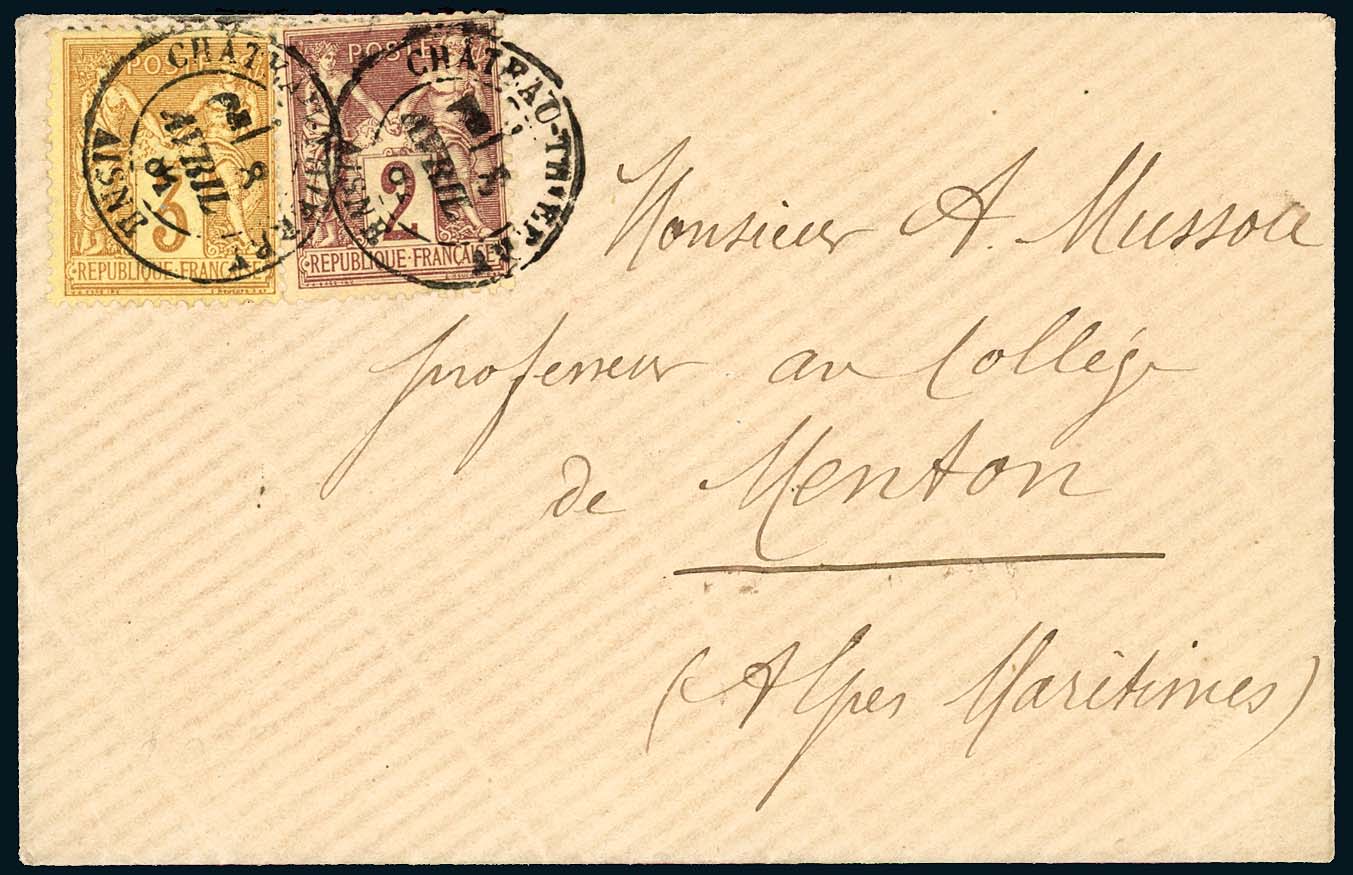 POSTE
3
REPUBLIQUE FRANÇAISE
POSTE
2
REPUBLIQUE FRANÇAISE
CHATEAU-THIERRY
8
AVRIL
AISNE
CHATEAU-THIERRY
8
AVRIL
AISNE
Monsieur A.
professeur au Collége
de Menton
(Alpes Maritimes)